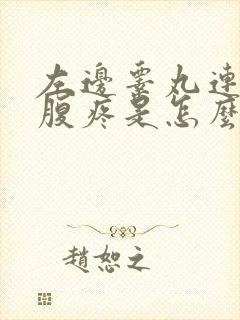 左邊睾丸連
腹疼是怎麼
趙恕之